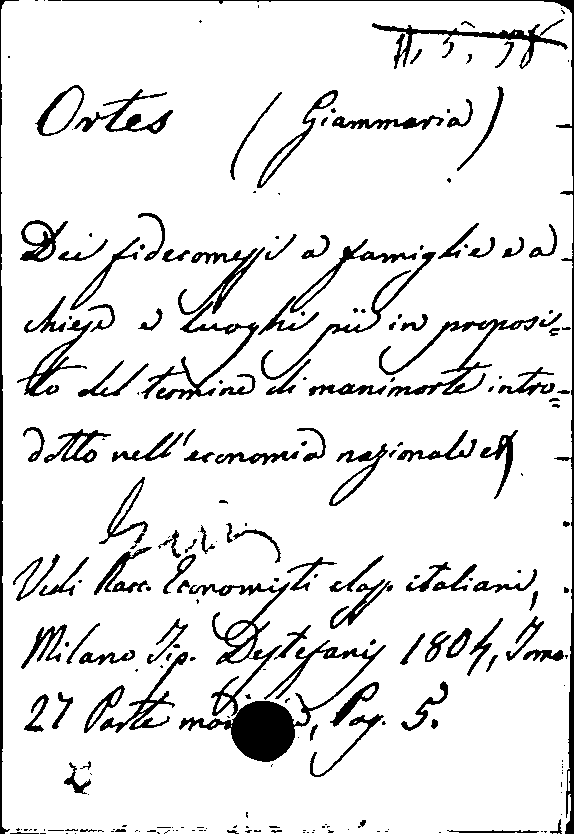 11, 5, 38
Ortes ( Giammaria )
Dei fidecomessi a famiglie e a
chiese e luoghi pii in proposi=
to del termine di manimorte intro=
dotto nell'economia nazionale
Vedi Racc. Economisti class. italiani,
Milano Tip. Destefanis 1804, Tomo
27 Parte , Pag. 5.